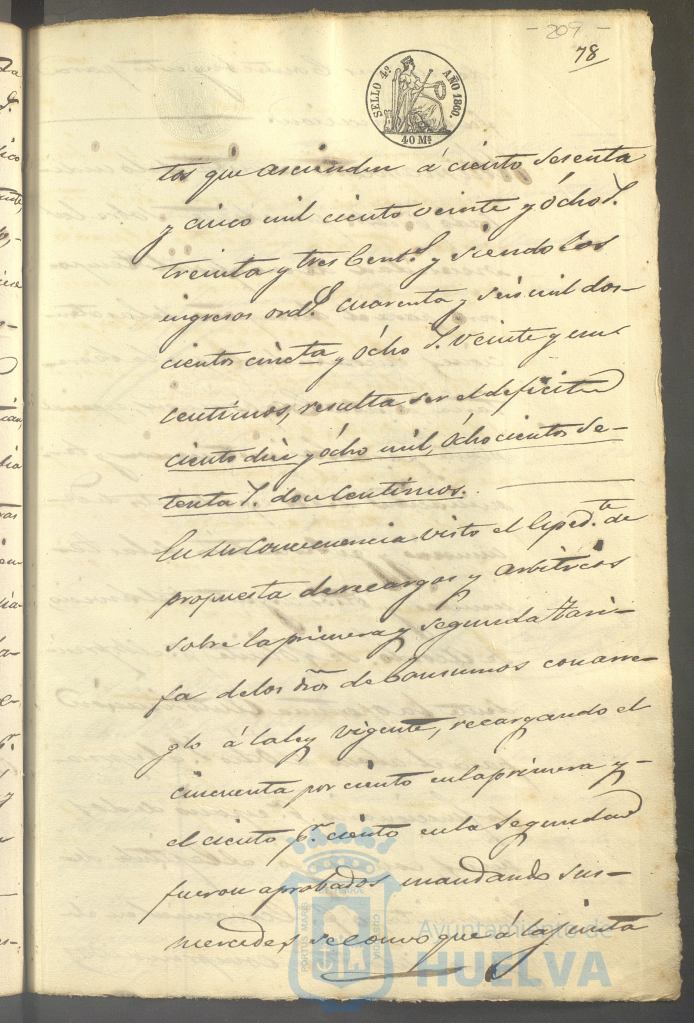 - 209 -
78
SELLO 4º AÑO 1860.
40 Ms
tos que ascienden á ciento sesenta
y cinco mil ciento veinte y ócho r.
treinta y tres Cents. y siendo los
ingresos ords. cuarenta y seis mil dos-
cientos cincta y ócho r. veinte y un
centimos, resulta ser el deficit
ciento diez y ócho mil, ócho cientos se-
tenta r. doce Centimos.
En su Consecuencia visto el Espedte de
propuesta de recargos y arbitrios
sobre la primera y segunda Tari-
fa de los dros de Consumos con arre-
glo á la ley vigente, recargando el
cincuenta por ciento en la primera y-
el ciento pr. ciento en la segunda
fueron aprobados mandando sus-
mercedes se convoque á la junta
Ayuntamiento de
HUELVA